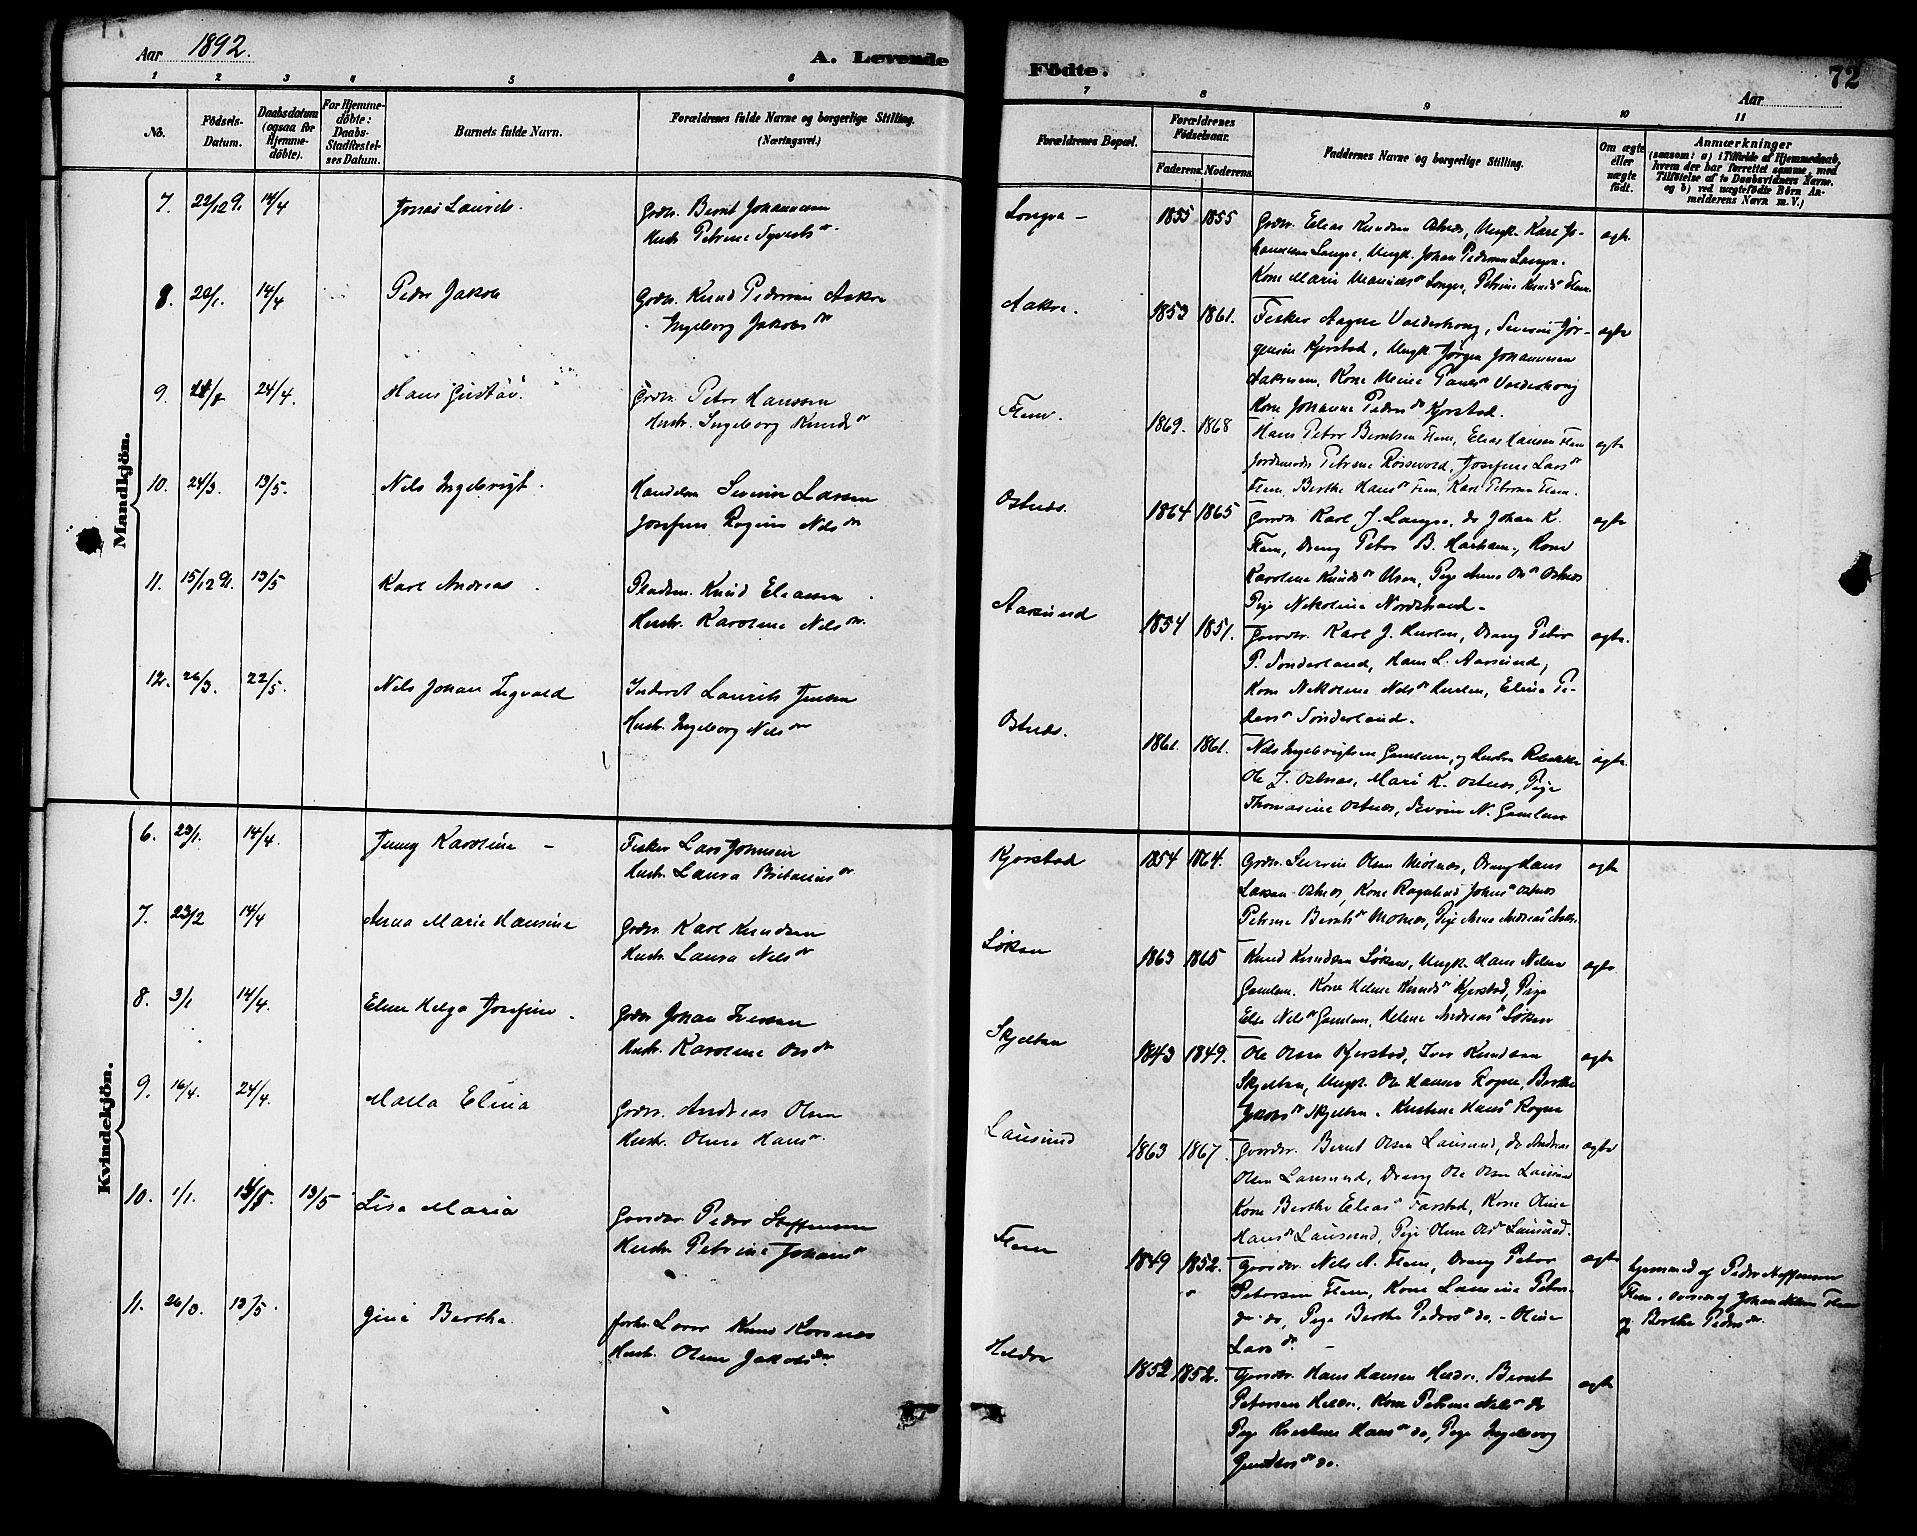 Aar 1892.
A. Levende
Födte.
72
Aar
1 2 3 4 5 6
7 8 9 10 11
No.
Födsels-
Datum.
Daabsdatum
(ogsaa for
Hjemme-
döbte).
For Hjemme-
döbte:
Daabs-
Stadfæstel-
ses Datum.
Barnets fulde Navn.
Forældrenes fulde Navne og borgerlige Stilling.
(Næringsvei.)
Forældrenes Bopæl.
Forældrenes
Födselsaar.
Faderens. Moderens.
Faddernes Navne og borgerlige Stilling.
Om ægte
eller
uægte
födt.
Anmærkninger
(saasom: a) i Tilfælde af Hjemmedaab,
hvem der har forrettet samme, med
Tilföielse af to Daabsvidners Navne,
og b) ved uægtefödte Børn An-
melderens Navn m. V.)
Mandkjön.
7. 22/12 91 14/4 Jonas Laurits. Grdbr. Bernt Johannesen
Hustr. Petrine Syverts dr.
Longva - 1855 1855 Grdbr. Elias Knudsen Østnes, Ungk. Karl Jo-
hannesen Longva, Ungk. Johan Pedersen Longva.
Kone Marie Longva, Petrine Knuds Flem.
ægte
8. 20/1. 14/4 Peder Jakob Grdbr. Knud Pedersen Aakre
Ingeborg Jakobs dr
Aakre. 1853 1861. Fisker Aagne Valderhoug, Severin Jör-
gensen Kjerstad, Ungk. Jørgen Johannesen
Aakre, Kone Valderhoug
Kone Johanne Peders dr Kjerstad.
ægte
9. 24/4. Hans Gustav. Grdbr. Peter Hanssen
Hustr. Ingeborg Knuds dr
Flem. 1869. 1868 Hans Peter Berntsen Flem, Elias Hansen Flem
Jordemoder Petrine Røssevold, Josefine Lars dr
Flem, Berthe Hans dr Flem, Karl Petersen Flem.
ægte
10. 24/3. 13/5. Nils Ingebrigt. Handelsm. Severin Larsen
Josefine Regine Nils dr
Østnes. 1864 1865 Gaardbr. Karl J. Longva, do Johan K.
Flem, Dreng Peter B. Harham, Kone
Karoline Knuds dr Ulsen, Pige Anne Ols dr Østnes
Pige Nikoline Nordstrand -
ægte
11. 15/12 91. 13/5 Karl Andreas Pladsm. Knud Eliassen
Hustr. Karoline Nils dr.
Aarsund 1854 1851. Gaardbr. Karl J. Huslen, Dreng Peter
P. Sonderland, Hans L. Aarsund,
Kone Nikoline Nils dr Huslen, Eline Pe-
ders dr Sønderland.
ægte.
12. 26/3. 22/5. Nils Johan Ingvald Inderst Laurits Jensen
Hustr. Ingeborg Nils dr
Østnes. 1861. 1861. Nils Ingebrigtsen Gamlem, og Hustru
Ole J. Østnes, Mari K. Østnes, Pige
Thomasine Østnes, Severin N. Gamlem
ægte
Kvindekjön.
6. 23/1. 14/4. Jenny Karoline - Fisker Lars Johnsen
Hustr. Laura Britanius dr
Kjerstad 1854 1864. Grdbr. Severin Olsen Molnes, Dreng Hans
Larsen Østnes, Kone Ragnhild Johans dr Østnes
Petrine Bernts dr Molnes, Pige Anne Andreas dr
ægte
7. 23/2 14/4 Anna Marie Hansine Grdbr. Karl Knudsen
Hustr. Laura Nils dr
Søken 1863 1865 Knud Knudsen Søken, Ungk. Hans Nilsen
Gamlem. Kone Helene Knuds dr Kjerstad, Pige
Else Nils dr Gamlem, Helene Andreas dr Søken
ægte
8. 3/1 14/4. Eline Helga Josefine. Grdbr. Johan Iversen
Hustr. Karoline Ols dr
Skjelten 1843 1849. Ole Olsen Kjerstad, Iver Knudsen
Skjelten, Ungk. Ole Hansen Rogne, Berthe
Jakobs dr Skjelten. Kristine Hans dr Rogne
ægte
9. 16/4. 24/4. Malla Elina Grdbr. Andreas Olsen
Hustr. Oline Hans dr.
Lausund 1863 1867. Gaardbr. Bernt Olsen Lausund, do Andreas
Olsen Lausund, Dreng Ole Olsen Lausund
Kone Berthe Elias dr Farstad, Kone Oline
Hans dr Lausund, Pige Oline Ols dr Lausund.
ægte
10. 1/1. 13/5 Lisa Maria Gaardbr. Peder Steffensen
Hustr. Petrine Johans dr
Flem 1849 1852. Gaardbr. Nils N. Flem, Dreng Peter
Petersen Flem, Kone Laurine Peters-
dr do, Pige Berthe Peders dr do, - Oline
Lars dr. -
ægte
hjemmed. af Peder Steffensen
Flem, overv. af Johan Flem
og Berthe Peders dr.
11. 26/3. 13/5. Gina Bertha. Knud Korsnes
Hustr. Oline Jakobs dr.
Hildre 1852 1852. Gaardbr. Hans Hansen Hildre. Bernt
Petersen Hildre, Kone Petrine Nils dr do
Pige Kristine Hans dr do, Pige Ingeborg
Gunders dr do.
ægte